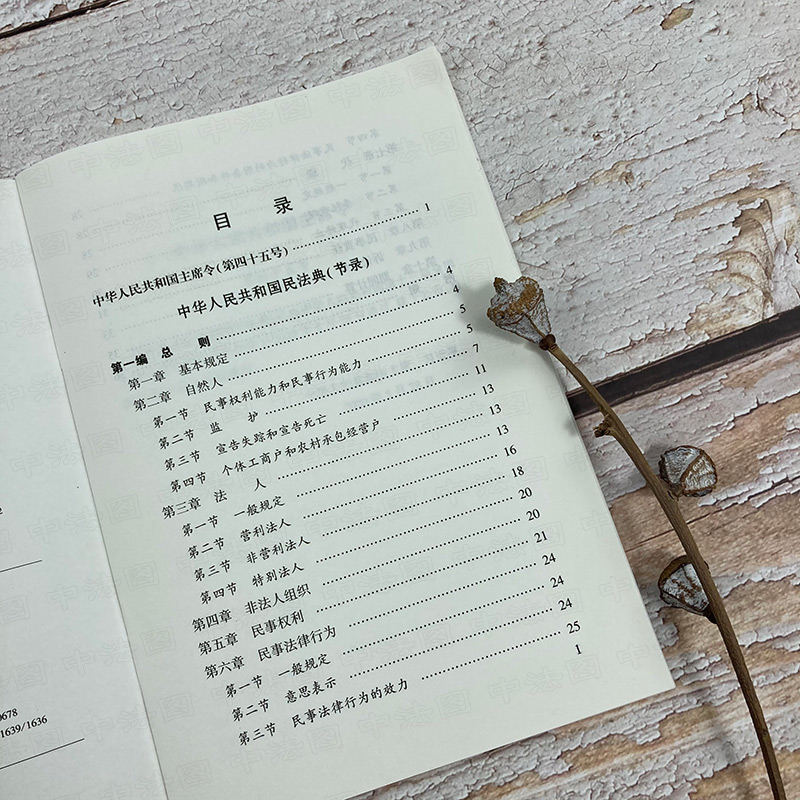 2
0678
1639/1636
目 录
中华人民共和国主席令(第四十五号) …… 1
中华人民共和国民法典(节录)
第一编 总 则 …… 4
第一章 基本规定 …… 4
第二章 自然人 …… 5
第一节 民事权利能力和民事行为能力 …… 5
第二节 监 护 …… 7
第三节 宣告失踪和宣告死亡 …… 11
第四节 个体工商户和农村承包经营户 …… 13
第三章 法 人 …… 13
第一节 一般规定 …… 13
第二节 营利法人 …… 16
第三节 非营利法人 …… 18
第四节 特别法人 …… 20
第四章 非法人组织 …… 20
第五章 民事权利 …… 21
第六章 民事法律行为 …… 24
第一节 一般规定 …… 24
第二节 意思表示 …… 24
第三节 民事法律行为的效力 …… 25
1